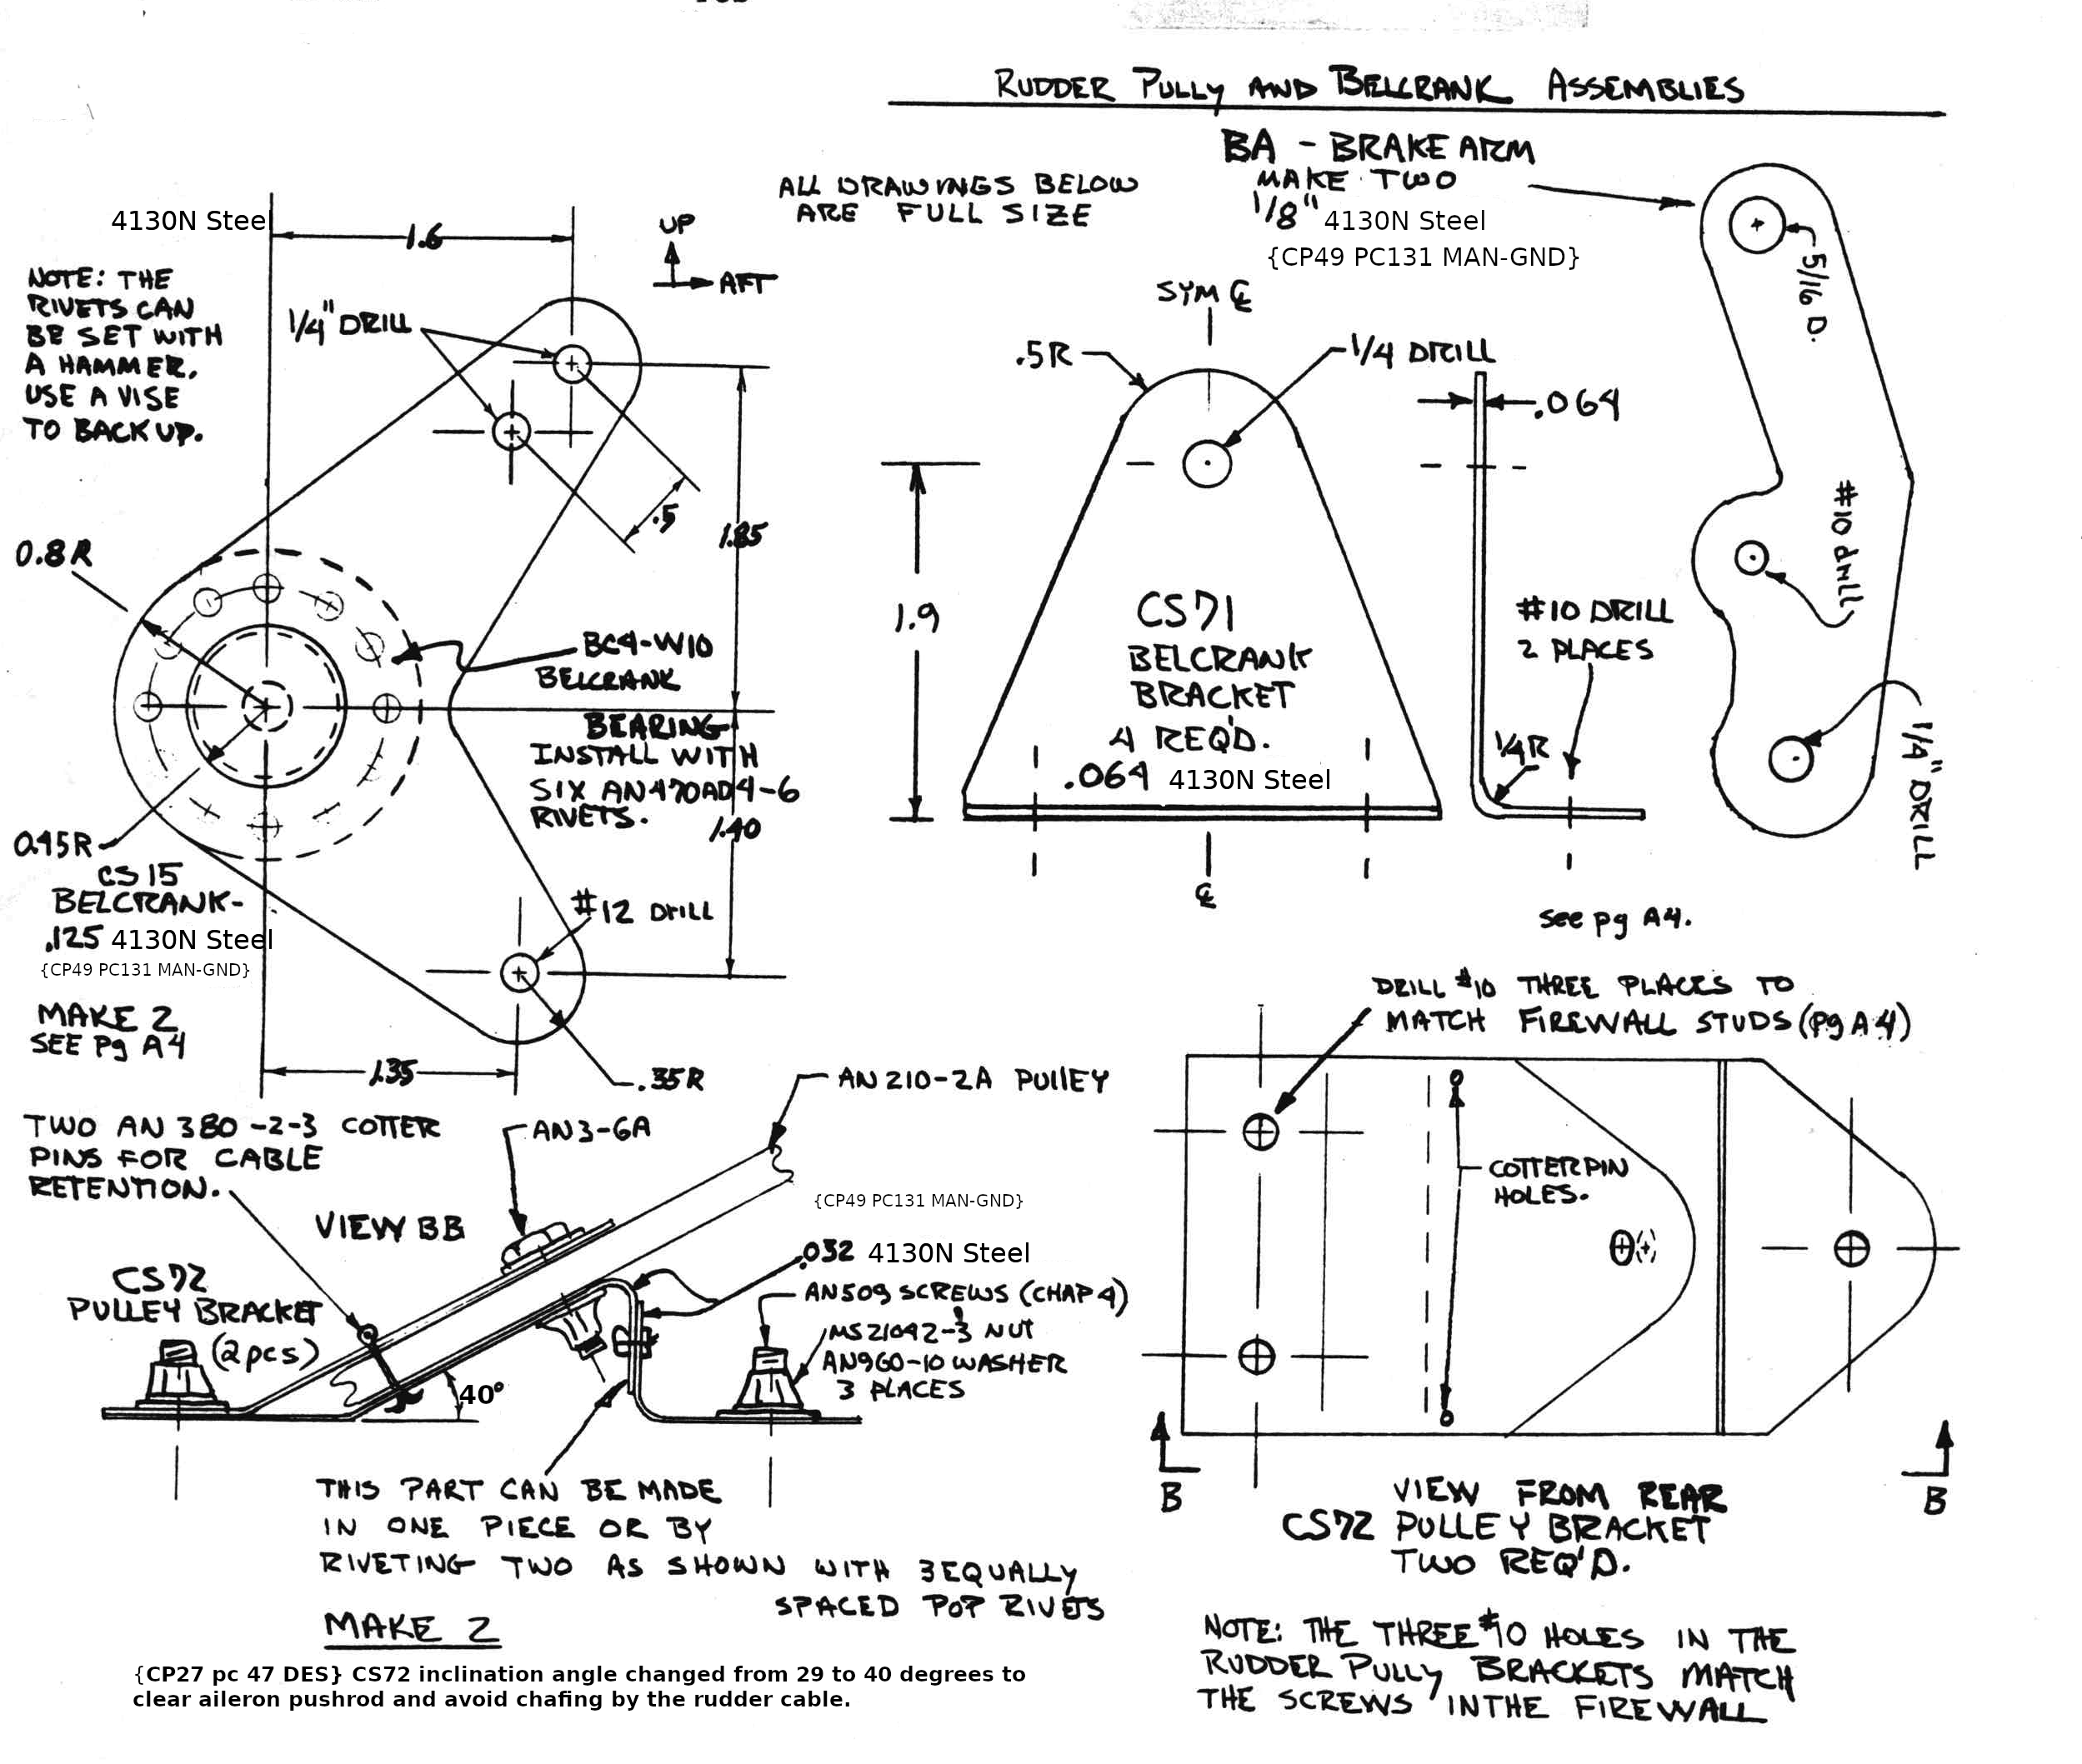 RUDDER PULLY AND BELCRANK ASSEMBLIES
BA - BRAKE ARM
MAKE TWO
1/8" 4130N Steel
{CP49 PC131 MAN-GND}
ALL DRAWINGS BELOW
ARE FULL SIZE
4130N Steel
1.6
UP
AFT
NOTE: THE
RIVETS CAN
BE SET WITH
A HAMMER.
USE A VISE
TO BACK UP.
1/4" DRILL
.5
1.85
0.8R
BC4-W10
BELCRANK
BEARING
INSTALL WITH
SIX AN470AD4-6
RIVETS.
1.40
0.45R
CS15
BELCRANK-
.125 4130N Steel
{CP49 PC131 MAN-GND}
MAKE 2
SEE Pg A4
#12 DRILL
1.35
.35R
SYM ℄
.5R
1/4 DRILL
.064
1.9
CS71
BELCRANK
BRACKET
4 REQ'D.
.064 4130N Steel
℄
#10 DRILL
2 PLACES
1/4R
5/16 D.
#10 drill
1/4" DRILL
see pg A4.
TWO AN 380-2-3 COTTER
PINS FOR CABLE
RETENTION.
AN3-6A
AN210-2A PULLEY
VIEW BB
{CP49 PC131 MAN-GND}
.032 4130N Steel
CS72
PULLEY BRACKET
(2pcs)
AN509 SCREWS (CHAP 4)
MS21042-3 NUT
AN960-10 WASHER
3 PLACES
40°
THIS PART CAN BE MADE
IN ONE PIECE OR BY
RIVETING TWO AS SHOWN WITH 3 EQUALLY
SPACED POP RIVETS
MAKE 2
{CP27 pc 47 DES} CS72 inclination angle changed from 29 to 40 degrees to
clear aileron pushrod and avoid chafing by the rudder cable.
DRILL #10 THREE PLACES TO
MATCH FIREWALL STUDS (Pg A4)
COTTER PIN
HOLES.
B
B
VIEW FROM REAR
CS72 PULLEY BRACKET
TWO REQ'D.
NOTE: THE THREE #10 HOLES IN THE
RUDDER PULLY BRACKETS MATCH
THE SCREWS IN THE FIREWALL